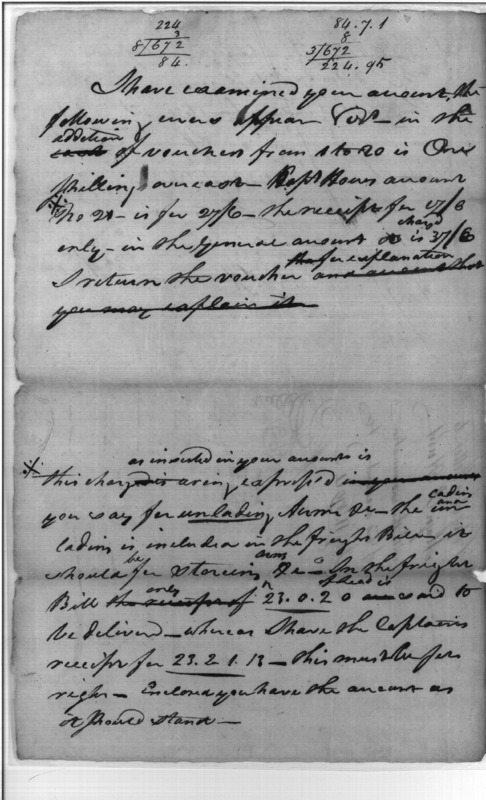 224
3
8/672
84.
84.7.1
8
3/672
224.95
I have examined your account, the
following errors appear Vizt in the
addition
cash of vouchers from 1 to 20 is One
shilling overcast Hours account
No 21 is for 27/6 the receipt for 17/6
charged
only in the General account is 37/6
for explanation
I return the voucher and account that
you may explain it
as inserted in your accounts is
this charge is wrong expressed in your account
lading
you say for unlading Arms &c the un
and
lading is included in the freight Bill it
be arms
should for Storeing &c In the freight
only Lead is
Bill the receipt of 23.0.2 0 said to
be delivered whereas I have the Captains
receipt for 23.2.1.13 this must be set
right Enclosed you have the account as
it should stand